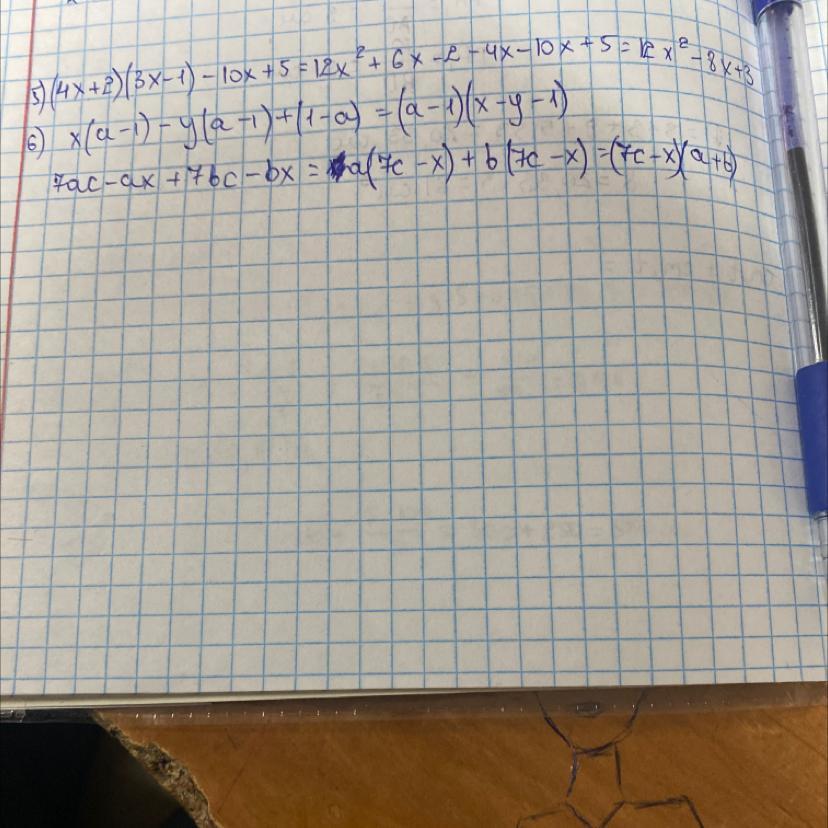 5) (4x+2)(3x-1) - 10x + 5 = 12x² + 6x - 2 - 4x - 10x + 5 = 12x² - 8x + 3
6) x(a-1) - y(a-1) + (1-a) = (a-1)(x-y-1)
7ac - ax + 7bc - bx = a(7c - x) + b(7c - x) = (7c-x)(a+b)